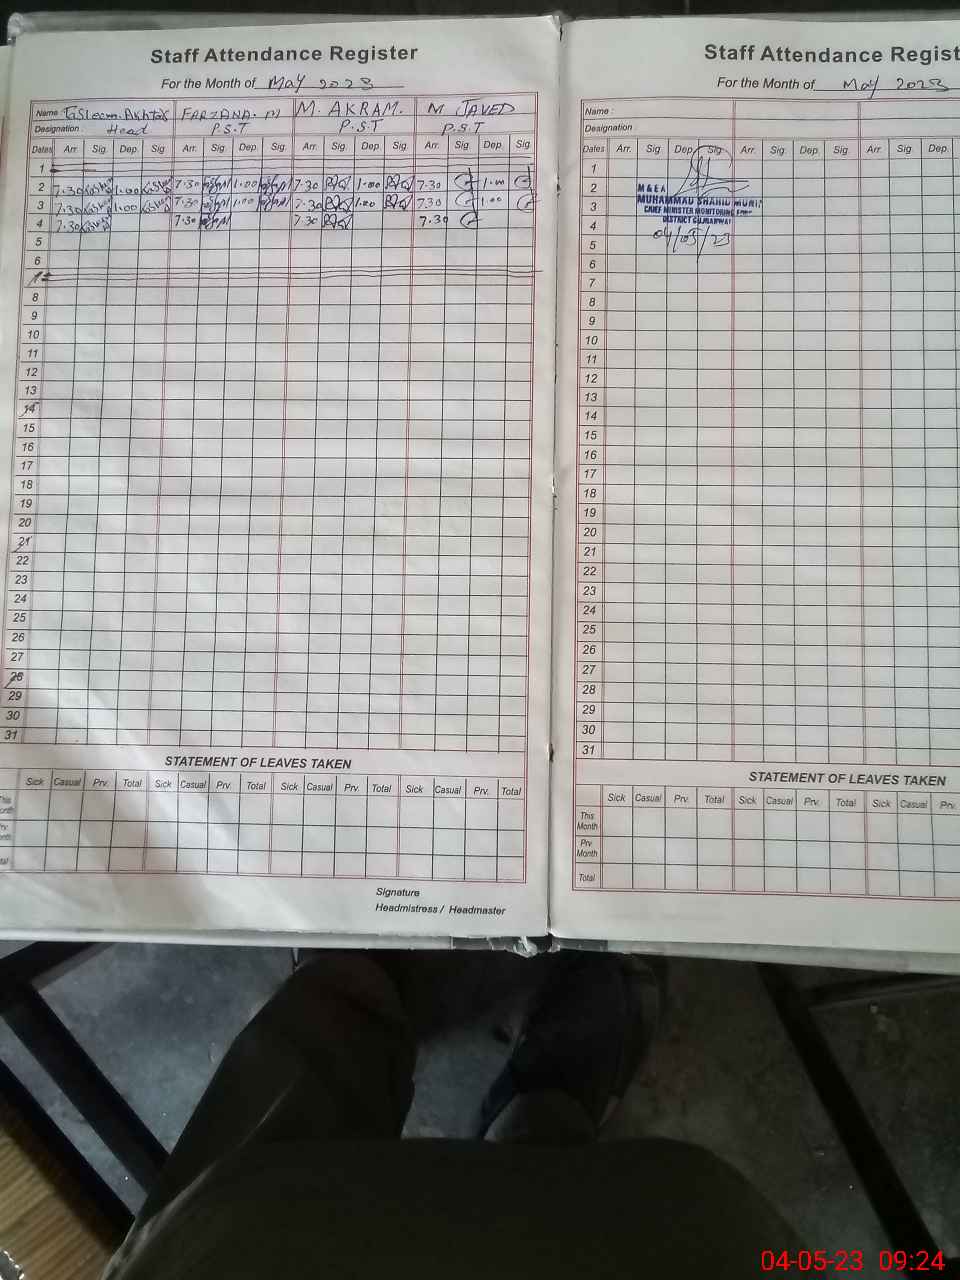 Staff Attendance Register
For the Month of May 2023
Name : Tasleem Akhtar FARZANA M. AKRAM. M. JAVED
Designation : Head P.S.T P.S.T P.S.T
Dates Arr. Sig. Dep. Sig. Arr. Sig. Dep. Sig. Arr. Sig. Dep. Sig. Arr. Sig. Dep. Sig.
1
2 7.30 1.00 7.30 1.00 7.30 1.00 7.30 1.00
3 7.30 1.00 7.30 1.00 7.30 1.00 7.30 1.00
4 7.30 7.30 7.30 7.30
5
6
7
8
9
10
11
12
13
14
15
16
17
18
19
20
21
22
23
24
25
26
27
28
29
30
31
STATEMENT OF LEAVES TAKEN
Sick Casual Prv. Total Sick Casual Prv. Total Sick Casual Prv. Total Sick Casual Prv. Total
Signature
Headmistress / Headmaster
Staff Attendance Regist
For the Month of May 2023
Name :
Designation :
Dates Arr. Sig. Dep. Sig. Arr. Sig. Dep. Sig. Arr. Sig. Dep.
1
2
3
4
5
6
7
8
9
10
11
12
13
14
15
16
17
18
19
20
21
22
23
24
25
26
27
28
29
30
31
M & E A
MUHAMMAD SHAHID
CHIEF MINISTER MONITORING
DISTRICT GUJRANWALA
04/05/23
STATEMENT OF LEAVES TAKEN
Sick Casual Prv. Total Sick Casual Prv. Total Sick Casual Prv.
This Month
Prv. Month
Total
04-05-23 09:24